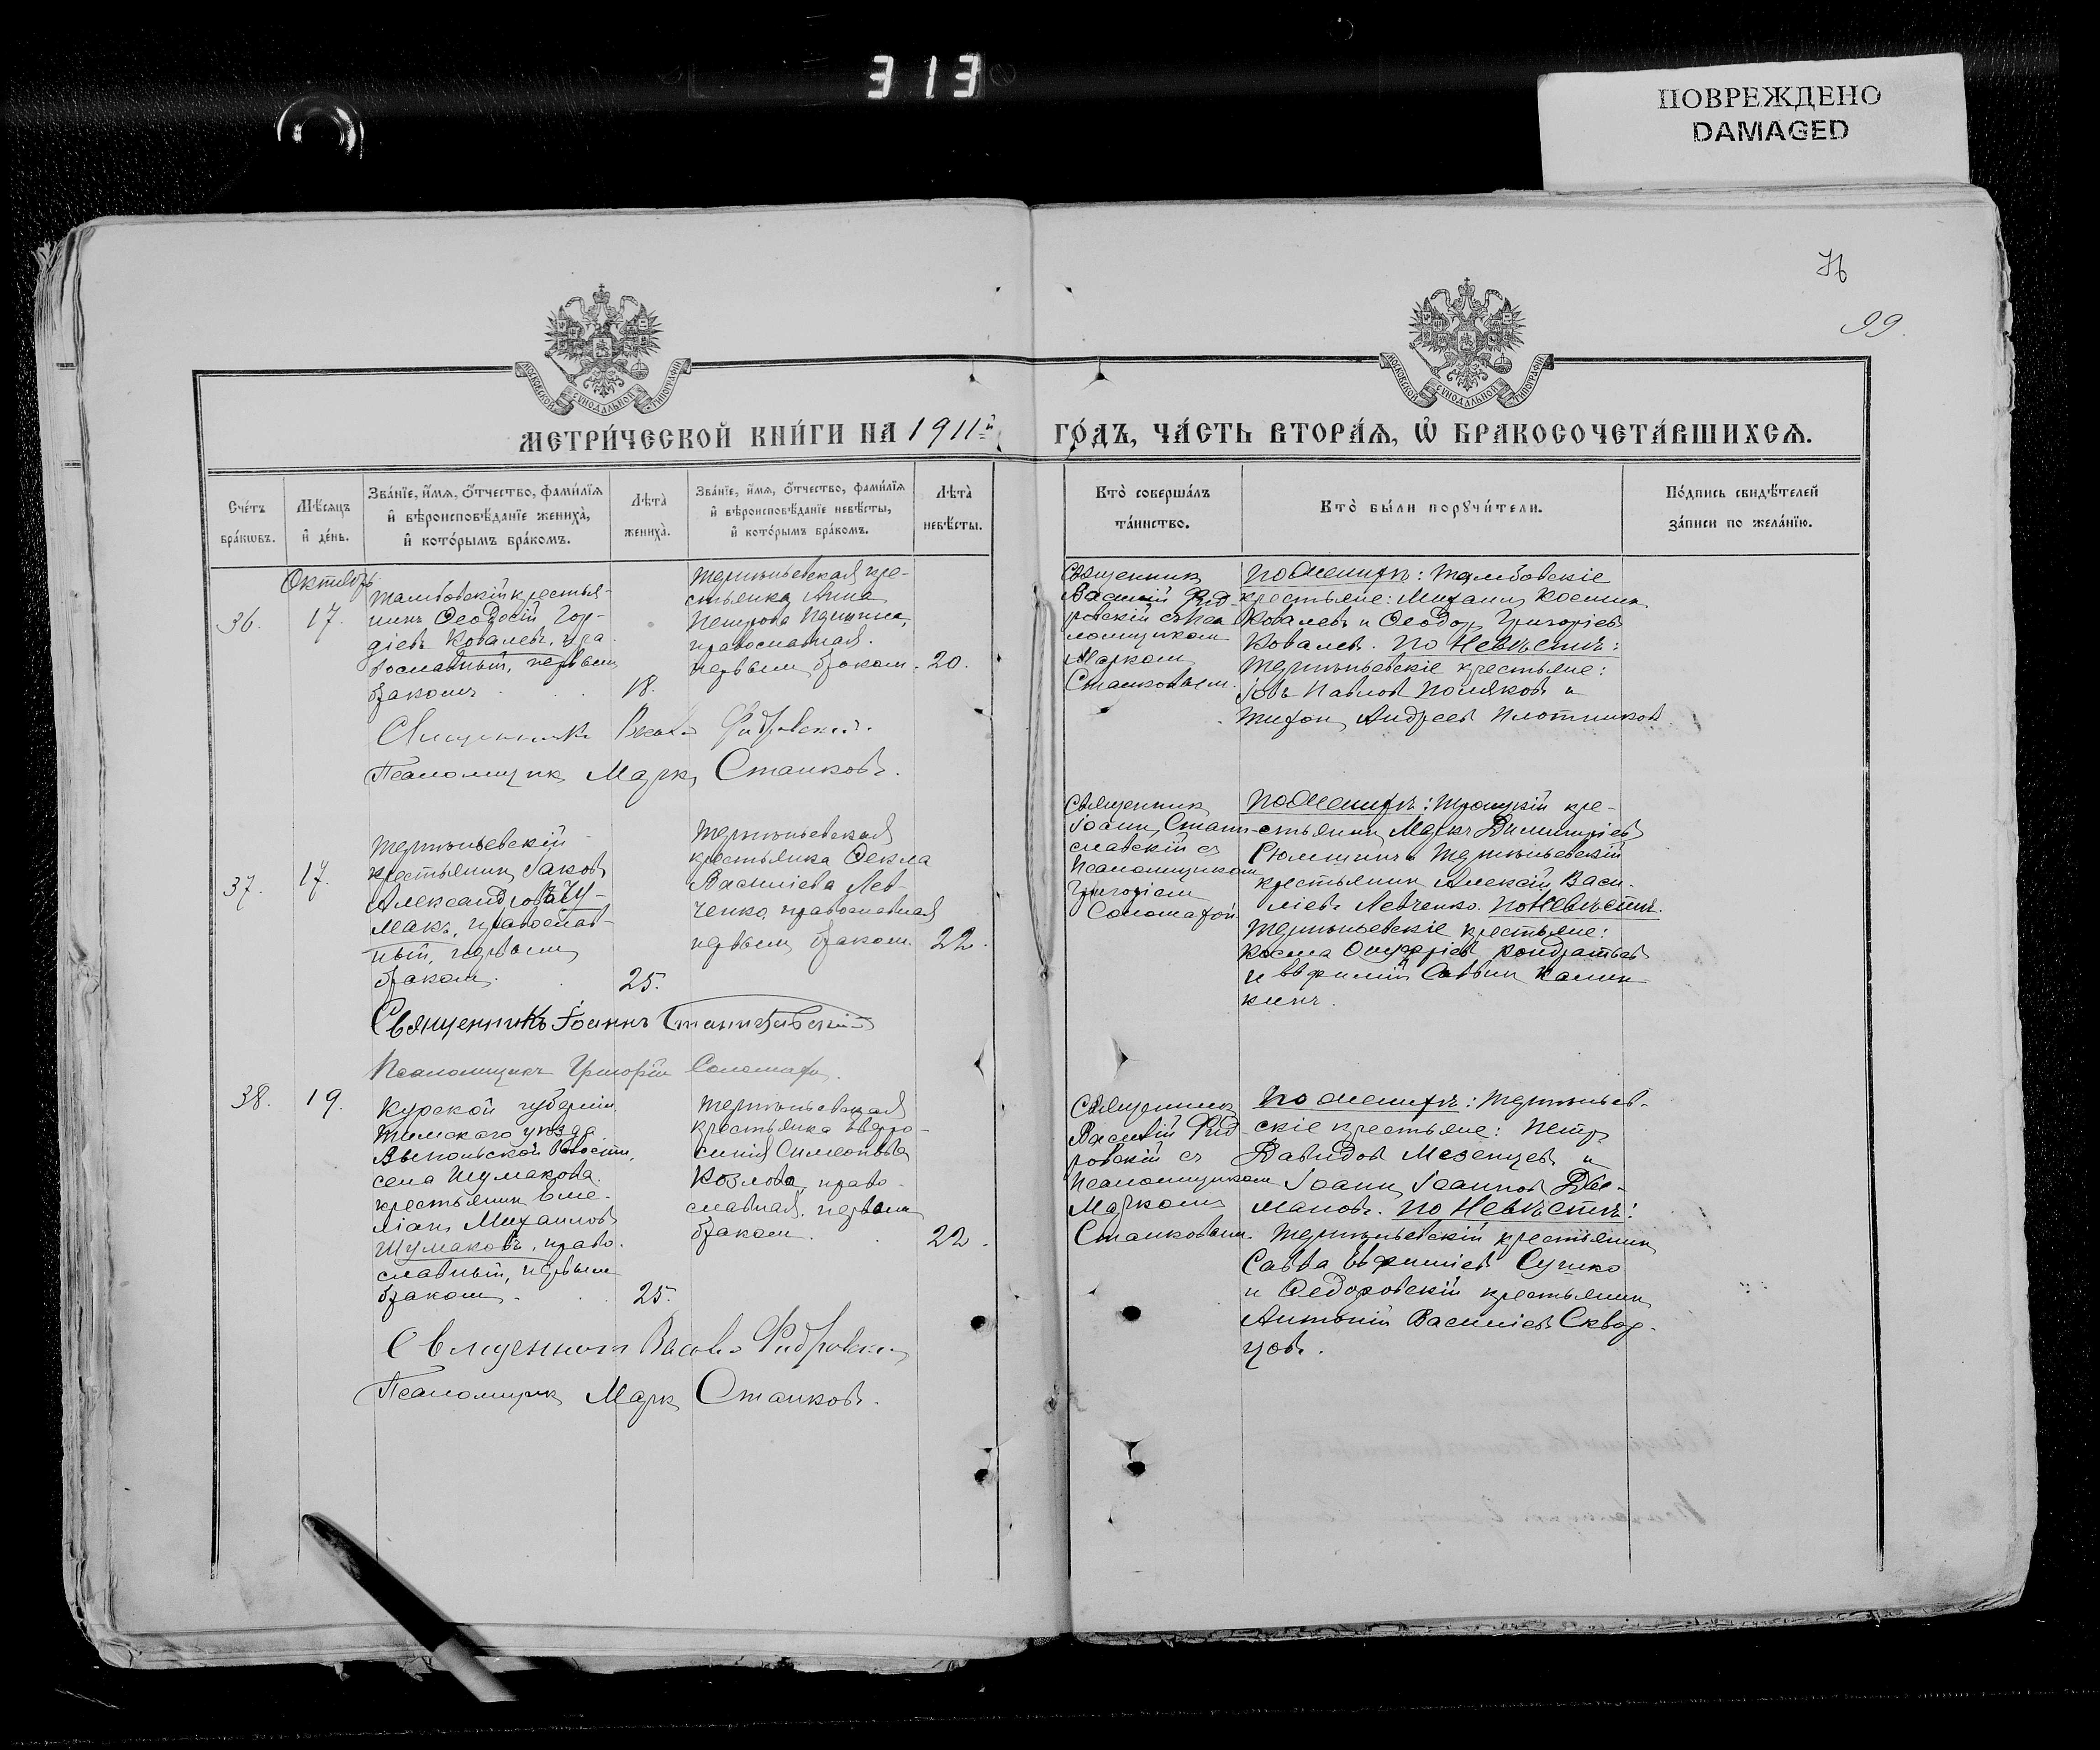 313
ПОВРЕЖДЕНО
DAMAGED
99.
МОСКОВСКОЙ СѴНОДАЛЬНОЙ ТИПОГРАФІИ
МОСКОВСКОЙ СѴНОДАЛЬНОЙ ТИПОГРАФІИ
МЕТРИ́ЧЕСКОЙ КНИ́ГИ НА 1911й ГО́ДЪ, ЧА́СТЬ ВТОРА́Ѧ, Ѡ҆ БРАКОСОЧЕТА́ВШИХСѦ.
Сче́тъ бра́кѡвъ.
Мѣ́сѧцъ и҆ де́нь.
Зва́нїе, и҆́мѧ, ѻ҆́тчество, фами́лїѧ
и҆ вѣроисповѣ́данїе жениха̀,
и҆ кото́рымъ бра́комъ.
Лѣ́та̀ жениха̀.
Зва́нїе, и҆́мѧ, ѻ҆́тчество, фами́лїѧ
и҆ вѣроисповѣ́данїе невѣ́сты,
и҆ кото́рымъ бра́комъ.
Лѣ́та̀ невѣ́сты.
Кто̀ соверша́лъ та́инство.
Кто̀ бы́ли порꙋчи́тели.
По́дпись свидѣ́телей за́писи по жела́нїю.
Октябрь
36.
17.
Тамбовскій крестья-
нинъ Ѳеодосій Гор-
діевъ Ковалевъ, пра-
вославный, первымъ
бракомъ
18.
Терпѣньевская кре-
стьянка Анна
Петрова
православная.
первымъ бракомъ.
20.
Священникъ
Василій Фид-
ровскій съ пса-
ломщикомъ
Маркомъ
Станковымъ.
По женихѣ: Тамбовскіе
крестьяне: Михаилъ Космин
Ковалевъ и Ѳеодоръ Григоріевъ
Ковалевъ. По невѣстѣ:
Терпѣньевскіе крестьяне:
Іовъ Павловъ Поляковъ и
Тихонъ Андреевъ Плотниковъ.
Священникъ Василій Фидровскій.
Псаломщикъ Маркъ Станковъ.
37.
17.
Терпѣньевскій
крестьянинъ Іаковъ
Александровъ Чу-
макъ, православ-
ный, первымъ
бракомъ.
25.
Терпѣньевская
крестьянка Ѳекла
Василіева Лев-
ченко, православная
первымъ бракомъ.
22.
Священникъ
Іоаннъ Стани-
славскій съ
псаломщикомъ
Григоріемъ
Соломахой
По женихѣ: Троицкій кре-
стьянинъ Маркъ Димитріевъ
Рюмшинъ и Терпѣньевскій
крестьянинъ Алексій Васи-
ліевъ Левченко. По невѣстѣ:
Терпѣньевскіе крестьяне:
Косма Онуфріевъ Кондратьевъ
и Евфимій Саввинъ Калин-
кинъ.
Священникъ Іоаннъ Станиславскій
Псаломщикъ Григорій Соломаха.
38.
19.
Курской губерніи
Тимскаго уѣзда
волости,
села Шумакова
крестьянинъ Еме-
ліанъ Михаиловъ
Шумаковъ, право-
славный, первымъ
бракомъ.
25.
Терпѣньевская
крестьянка Евфро-
синія Симеонова
Козлова, право-
славная, первымъ
бракомъ.
22.
Священникъ
Василій Фид-
ровскій съ
псаломщикомъ
Маркомъ
Станковымъ.
По женихѣ: Терпѣньев-
скіе крестьяне: Петръ
Давидовъ Мезенцевъ и
Іоаннъ Іоанновъ
мановъ. По невѣстѣ:
Терпѣньевскій крестьянинъ
Савва Евфиміевъ Сушко
и Ѳедоровскій крестьянинъ
Антоній Василіевъ Сквор-
цовъ.
Священникъ Василій Фидровскій
Псаломщикъ Маркъ Станковъ.